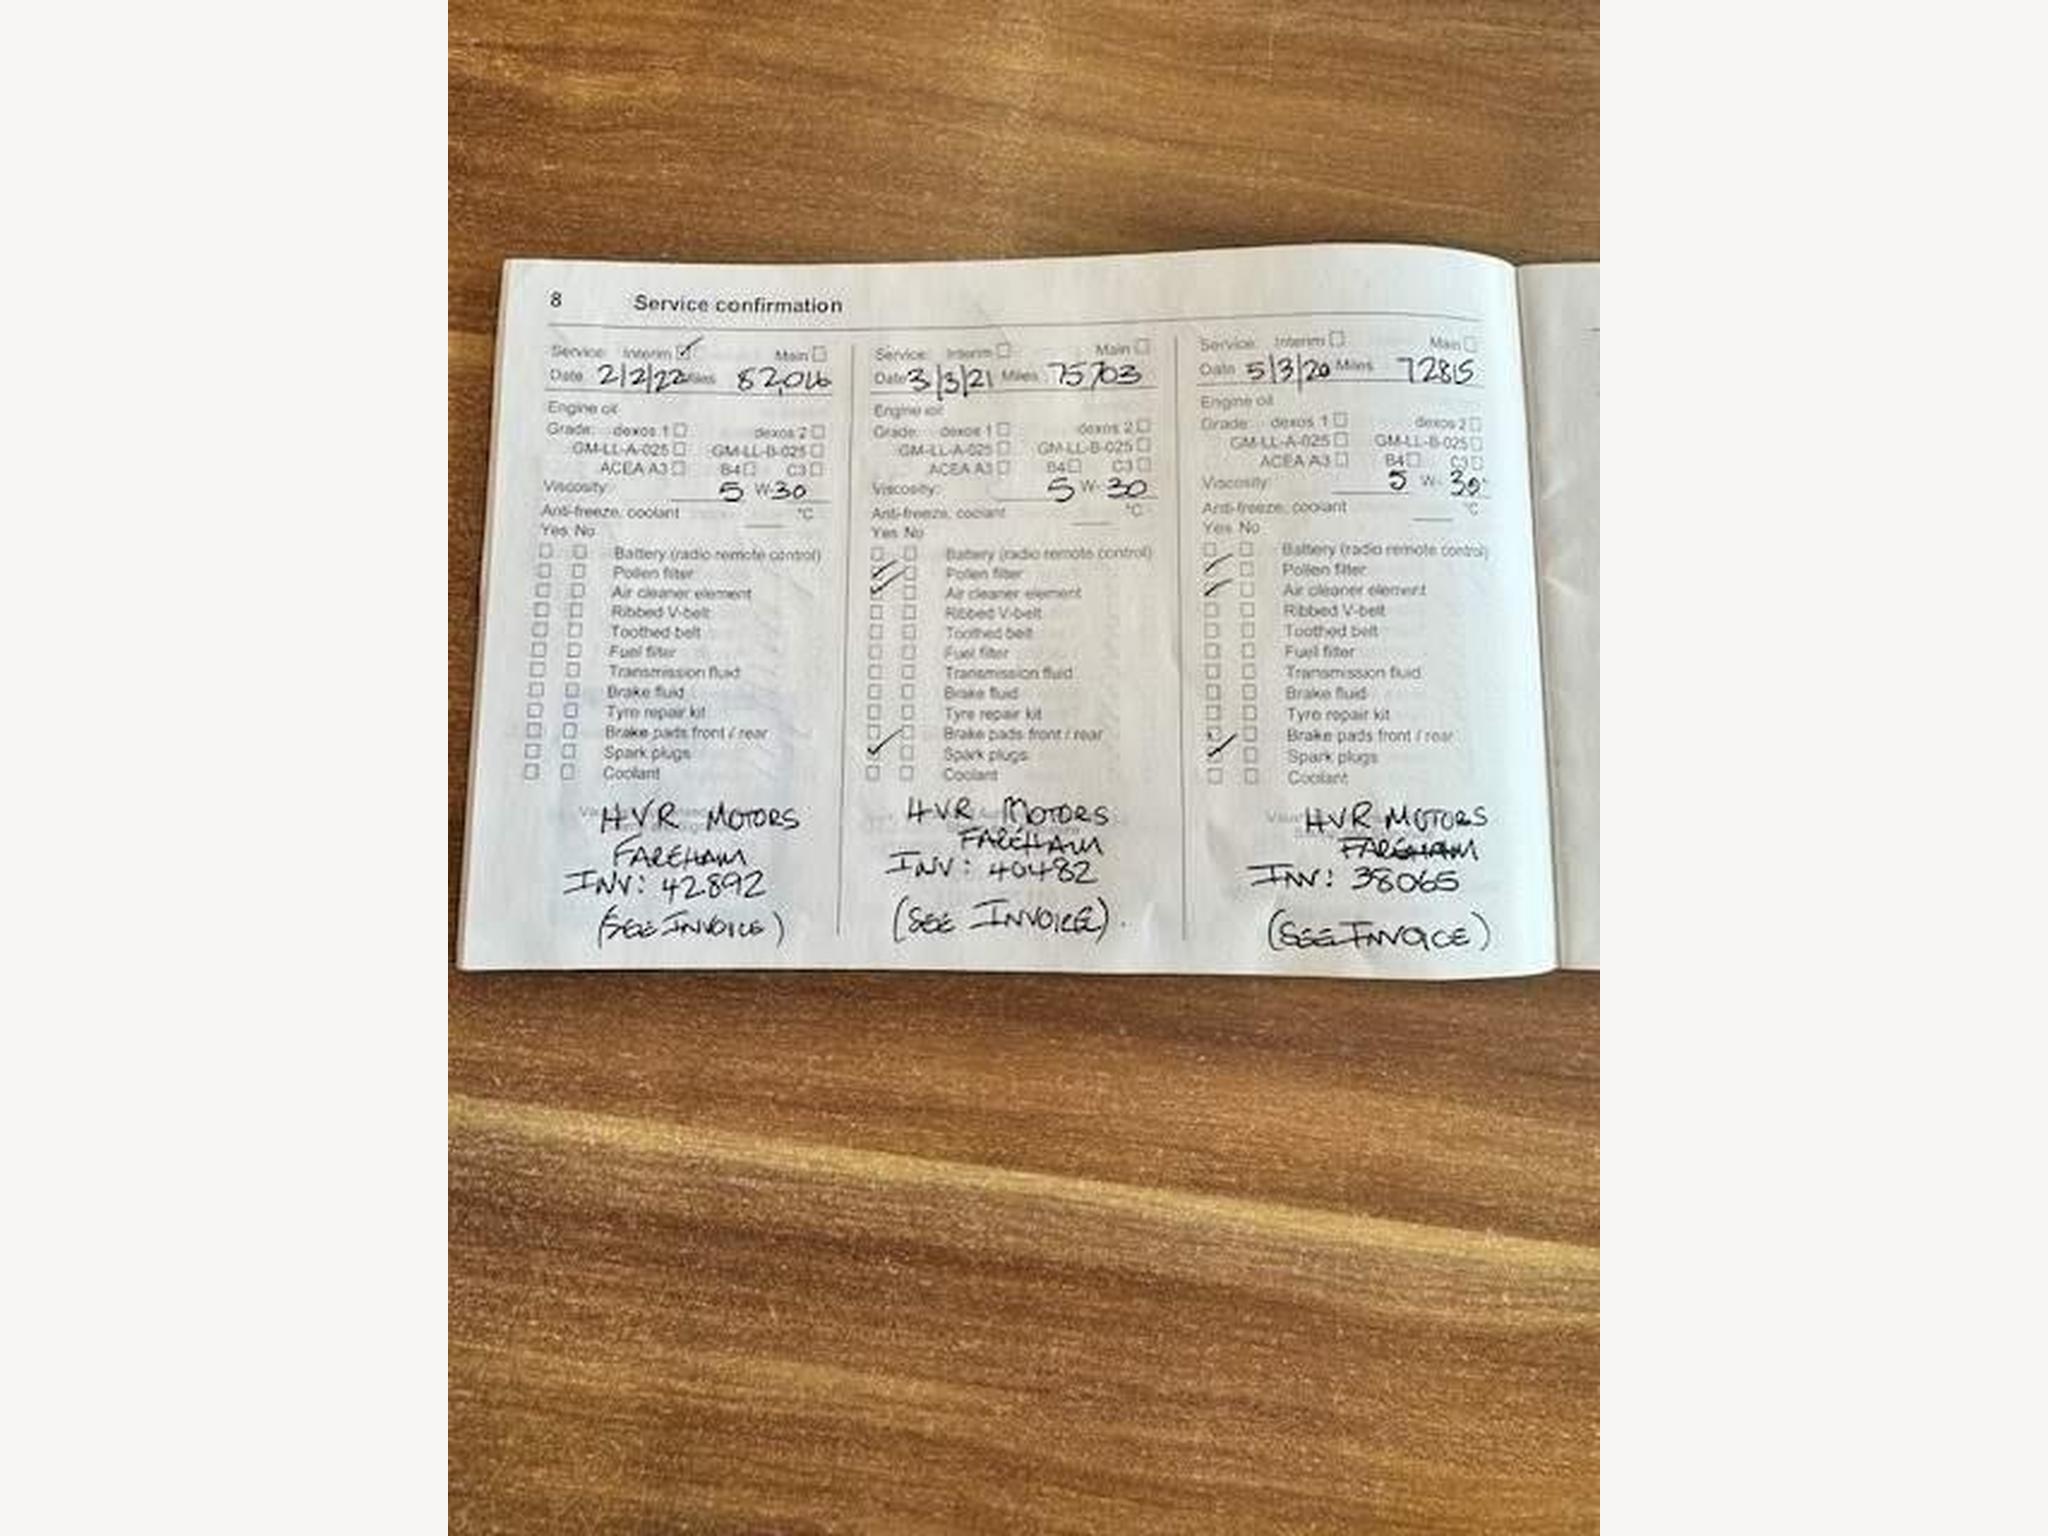 8 Service confirmation
Service: Interim Main
Date 2/2/22 Miles 82,016
Engine oil
Grade: dexos 1 dexos 2
GM-LL-A-025 GM-LL-B-025
ACEA A3 B4 C3
Viscosity: 5 W-30
Anti-freeze, coolant °C
Yes No
Battery (radio remote control)
Pollen filter
Air cleaner element
Ribbed V-belt
Toothed belt
Fuel filter
Transmission fluid
Brake fluid
Tyre repair kit
Brake pads front / rear
Spark plugs
Coolant
HVR MOTORS
FAREHAM
INV: 42892
(SEE INVOICE)
Service: Interim Main
Date 3/3/21 Miles 75703
Engine oil
Grade: dexos 1 dexos 2
GM-LL-A-025 GM-LL-B-025
ACEA A3 B4 C3
Viscosity: 5 W-30
Anti-freeze, coolant °C
Yes No
Battery (radio remote control)
Pollen filter
Air cleaner element
Ribbed V-belt
Toothed belt
Fuel filter
Transmission fluid
Brake fluid
Tyre repair kit
Brake pads front / rear
Spark plugs
Coolant
HVR MOTORS
FAREHAM
INV: 40482
(SEE INVOICE).
Service: Interim Main
Date 5/3/20 Miles 72815
Engine oil
Grade: dexos 1 dexos 2
GM-LL-A-025 GM-LL-B-025
ACEA A3 B4 C3
Viscosity: 5 W-30
Anti-freeze, coolant °C
Yes No
Battery (radio remote control)
Pollen filter
Air cleaner element
Ribbed V-belt
Toothed belt
Fuel filter
Transmission fluid
Brake fluid
Tyre repair kit
Brake pads front / rear
Spark plugs
Coolant
HVR MOTORS
FAREHAM
INV: 38065
(SEE INVOICE)